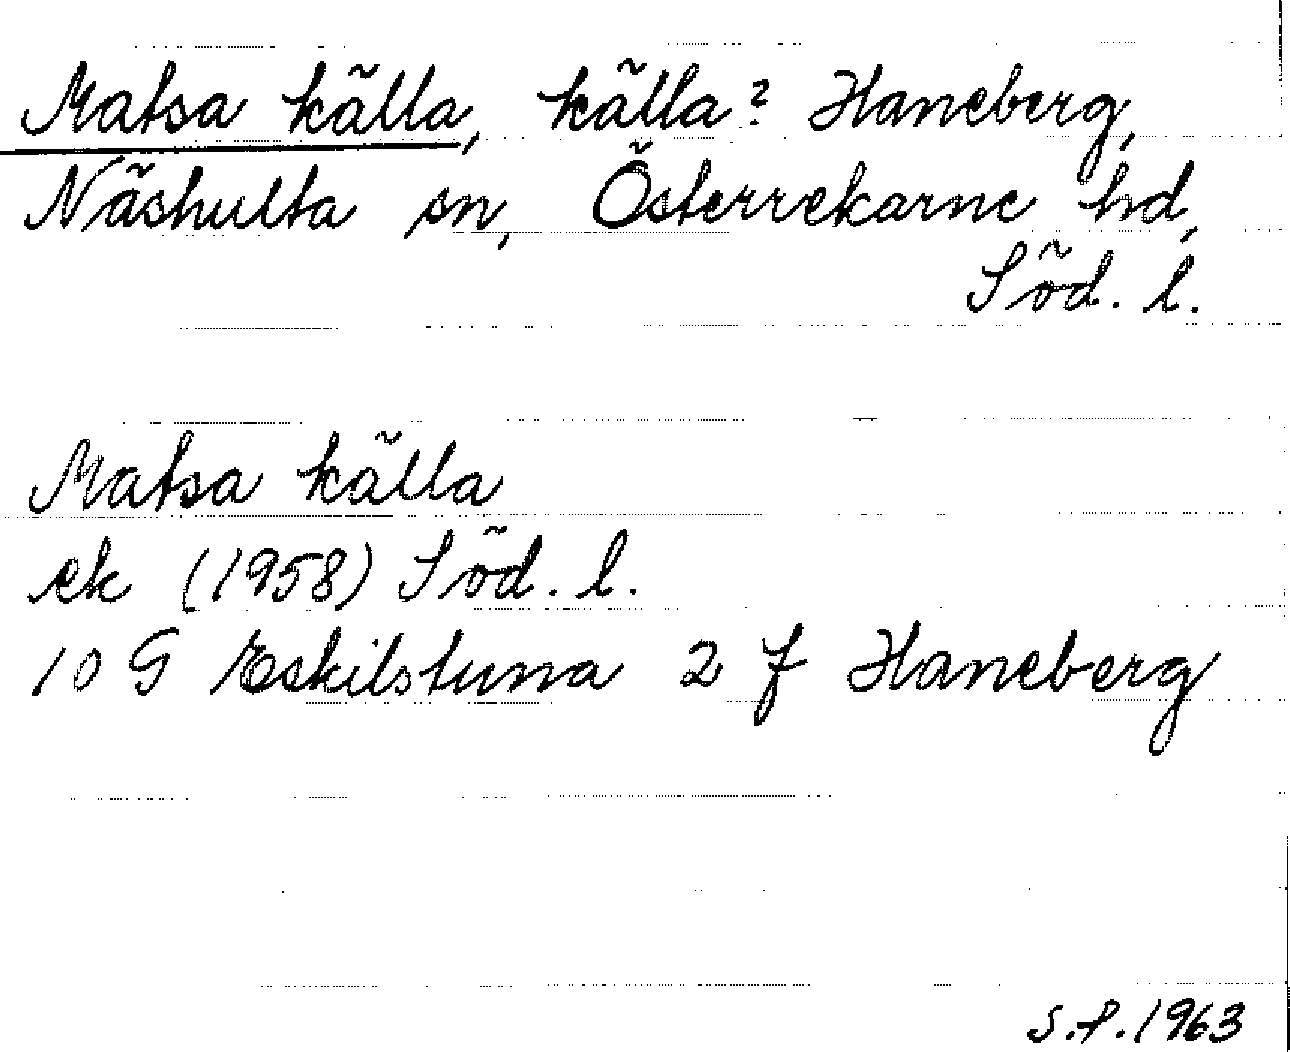 Matsa källa, källa? Haneberg,
Näshulta sn, Österrekarne hd,
Söd. l.
Matsa källa
ek (1958) Söd. l.
10 G Eskilstuna 2 f Haneberg
S.P. 1963